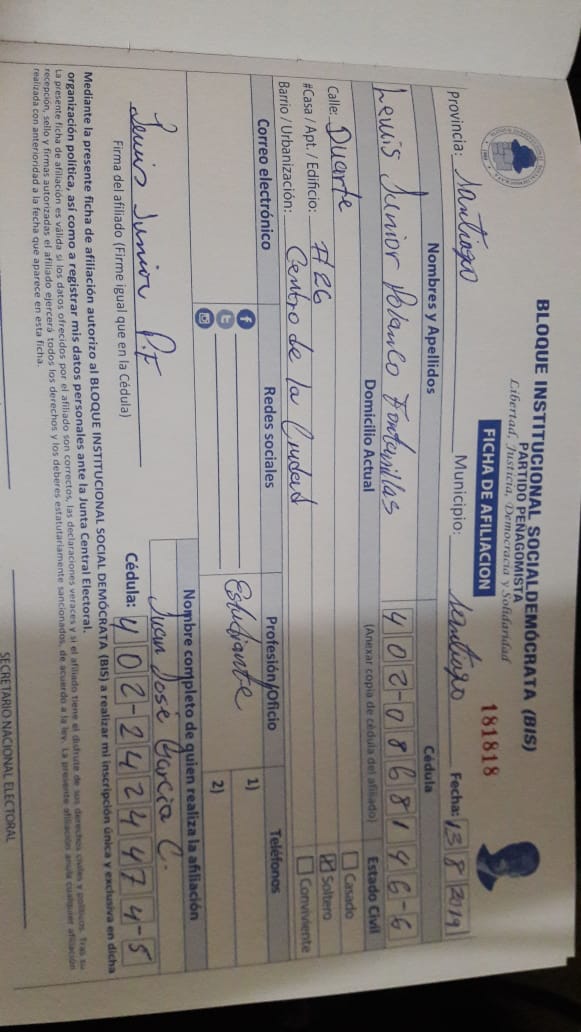 BLOQUE INSTITUCIONAL SOCIALDEMÓCRATA (BIS)
PARTIDO PEÑAGOMISTA
Libertad, Justicia, Democracia y Solidaridad
FICHA DE AFILIACION
181818
Provincia: Santiago Municipio: Santiago Fecha: 13 8 2019
Nombres y Apellidos Cédula
Lewis Junior Polanco Fontanillas 402-0868196-6
Domicilio Actual (Anexar copia de cédula del afiliado) Estado Civil
Calle: Duarte Casado
#Casa / Apt. / Edificio: #26 Soltero
Barrio / Urbanización: Centro de la Ciudad Conviviente
Correo electrónico Redes sociales Profesión/oficio Teléfonos
Estudiante 1)
2)
Nombre completo de quien realiza la afiliación
Juan José Garcia C.
Lewis Junior P.F
Firma del afiliado (Firme igual que en la Cédula) Cédula: 402-2424474-5
Mediante la presente ficha de afiliación autorizo al BLOQUE INSTITUCIONAL SOCIAL DEMÓCRATA (BIS) a realizar mi inscripción única y exclusiva en dicha
organización política, así como a registrar mis datos personales ante la Junta Central Electoral.
La presente ficha de afiliación es válida si los datos ofrecidos por el afiliado son correctos, las declaraciones veraces y si el afiliado tiene el disfrute de sus derechos civiles y políticos. Tras su
recepción, sello y firmas autorizadas el afiliado ejercerá todos los derechos y los deberes estatutariamente sancionados, de acuerdo a la ley. La presente afiliación anula cualquier afiliación
realizada con anterioridad a la fecha que aparece en esta ficha.
SECRETARIO NACIONAL ELECTORAL